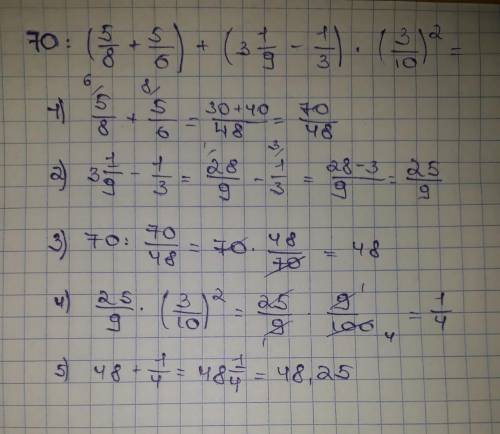 70 : (5/8 + 5/6) + (3 1/9 - 1/3) · (3/10)² =
1) 5/8 (6/ + 5/6 (8/ = 30+40/48 = 70/48
2) 3 1/9 - 1/3 = 28/9 (1/ - 1/3 (3/ = 28-3/9 = 25/9
3) 70 : 70/48 = 70 · 48/70 = 48
4) 25/9 · (3/10)² = 25/9 1 · 9 1/100 4 = 1/4
5) 48 + 1/4 = 48 1/4 = 48,25